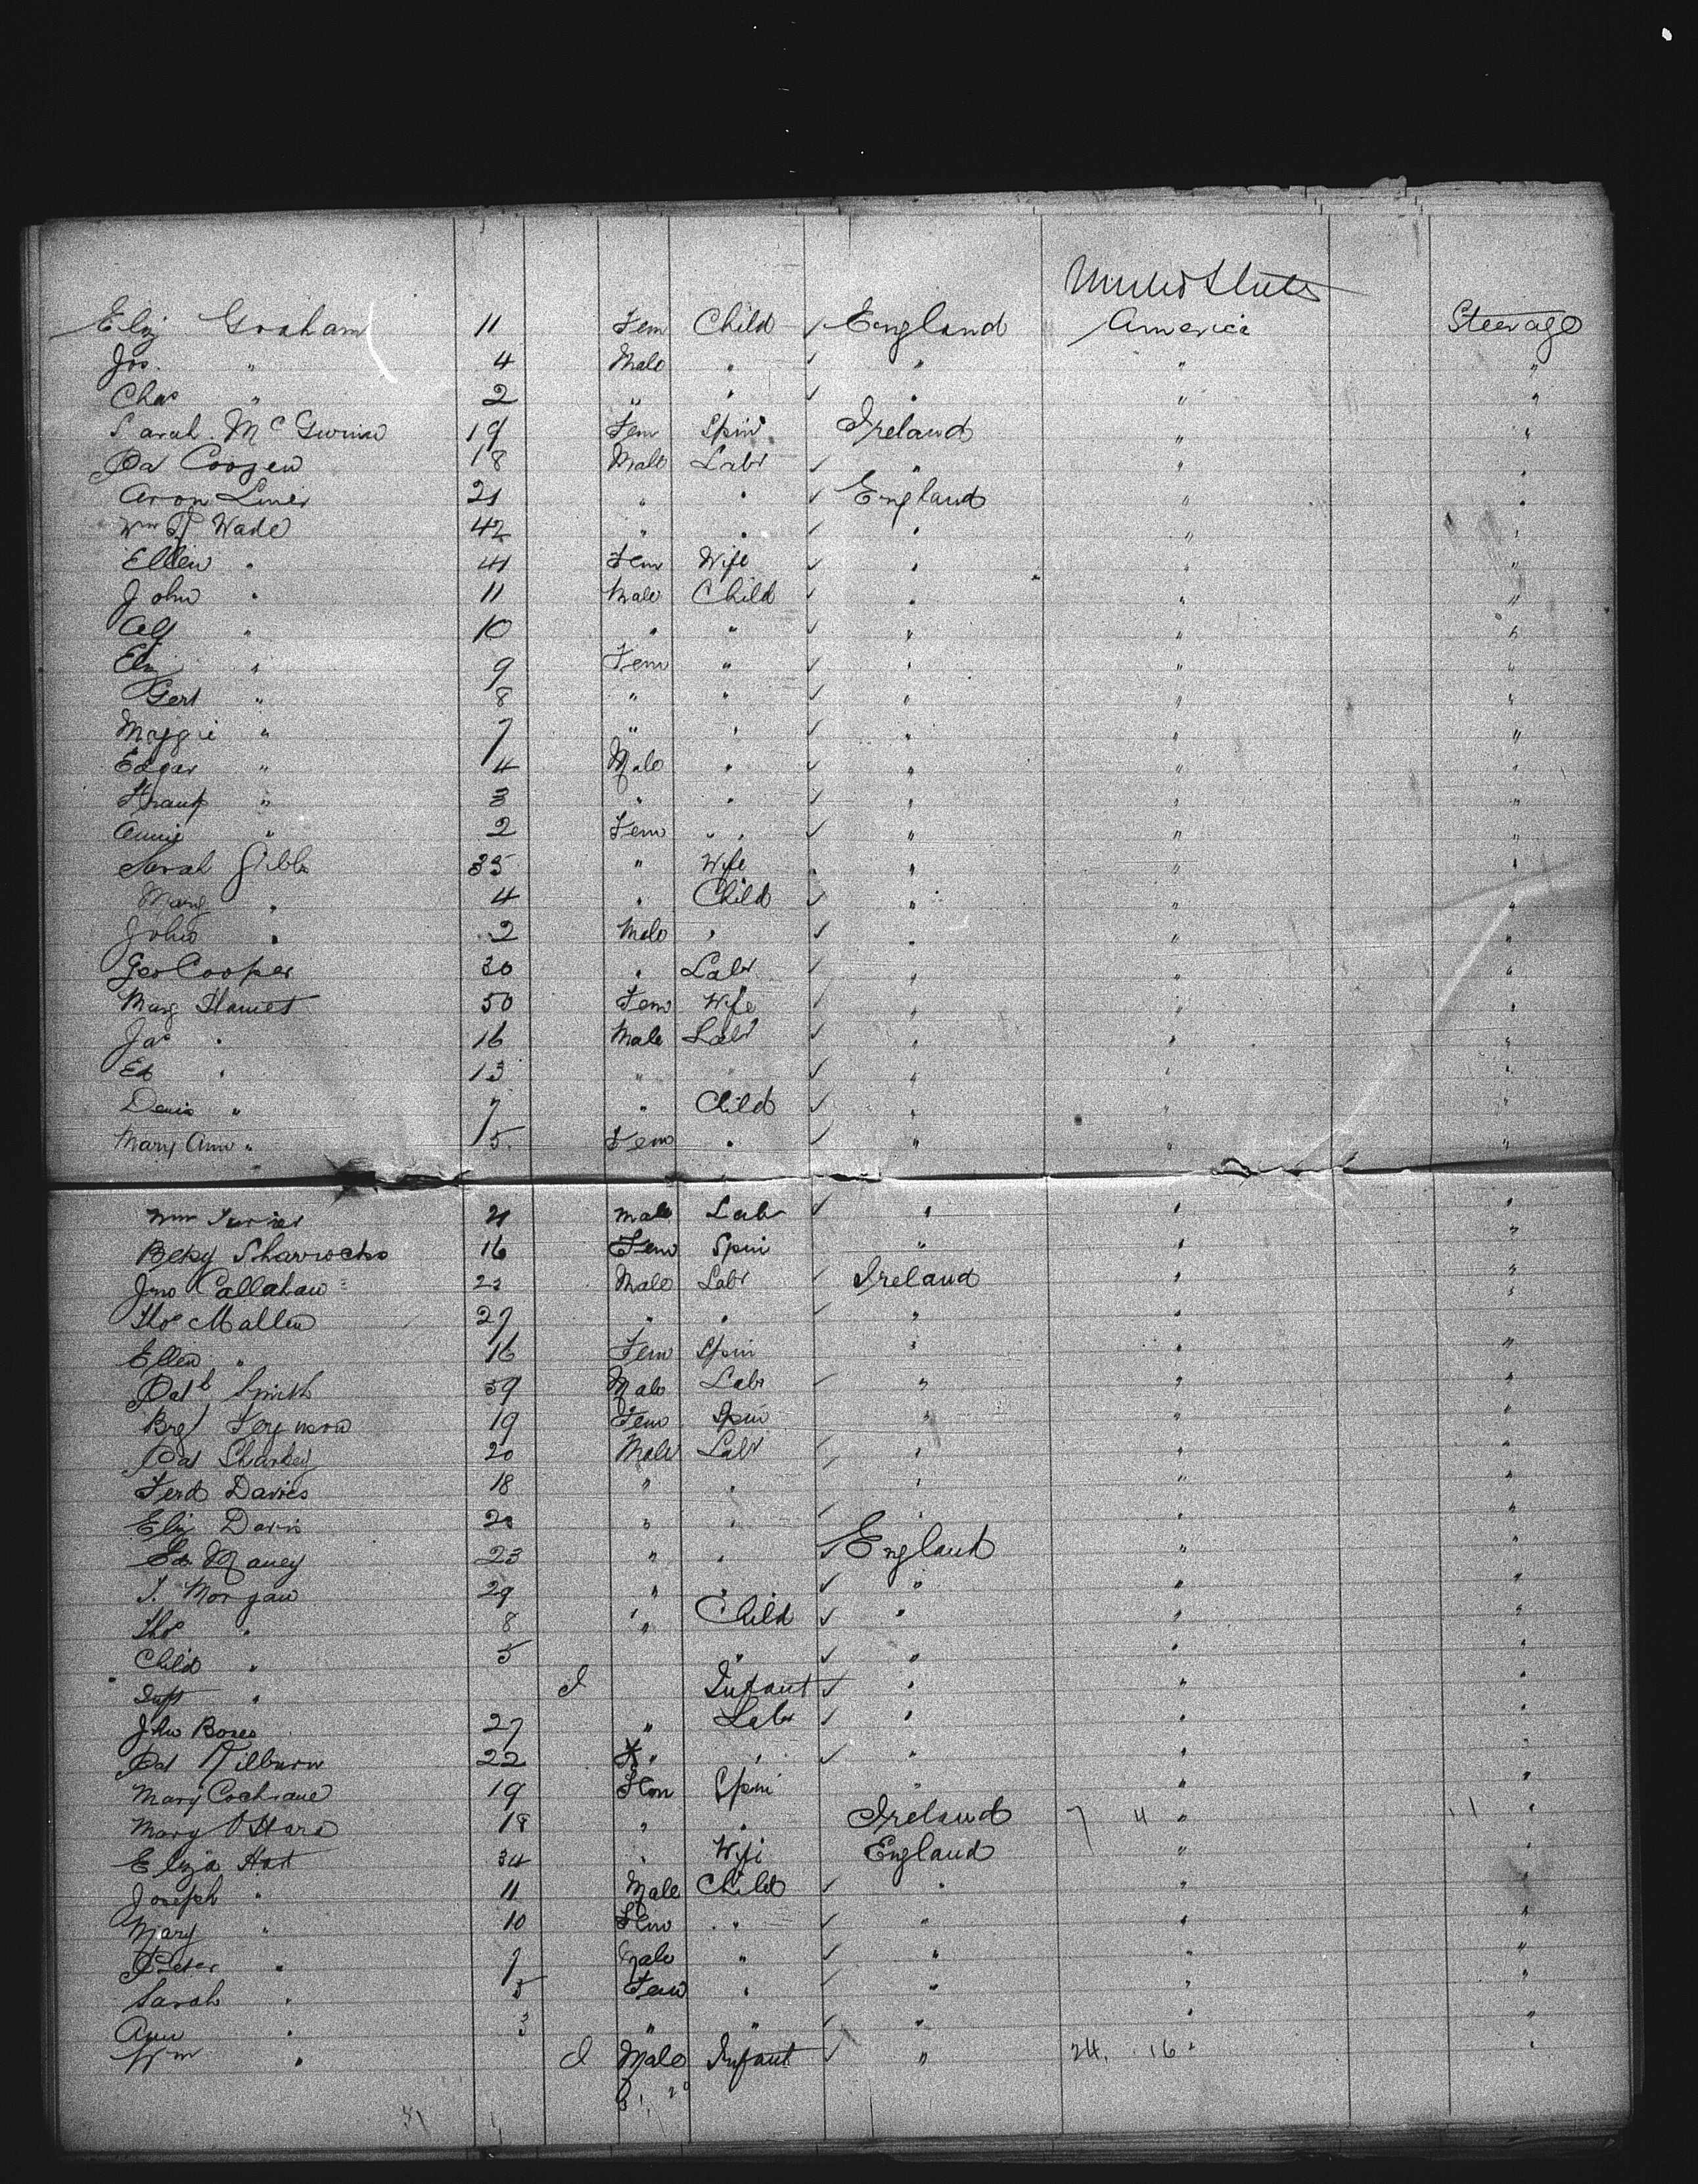 United States
Eliz Graham 11 Fem Child ✓ England America Steerage
Jos. " 4 Male " ✓ " " "
Chas " 2 " " ✓ " " "
Sarah Mc 19 Fem Spin Ireland " "
Pat 18 Male Labr ✓ " " "
Aron 21 " " ✓ England " "
Wm Wade 42 " " ✓ " " "
Ellen " 41 Fem Wife ✓ " " "
John " 11 Male Child ✓ " " "
Alf " 10 " " ✓ " " "
Eliz " 9 Fem " ✓ " " "
Gert " 8 " " ✓ " " "
Maggie " 7 " " ✓ " " "
Edgar " 4 Male " ✓ " " "
Frank " 3 " " ✓ " " "
Annie " 2 Fem " ✓ " " "
Sarah Gibbs 35 " Wife " " "
Marg " 4 " Child ✓ " " "
John " 2 Male " ✓ " " "
Geo Cooper 30 " Labr ✓ " " "
Marg 50 Fem Wife ✓ " " "
Jas " 16 Male Labr ✓ " " "
Ed " 13 " " ✓ " " "
Denis " 7 " Child ✓ " " "
Mary Ann " 5 Fem " ✓ " " "
Wm 21 Male Lab ✓ " " "
Betsy Sharrocks 16 Fem Spin " " "
Jno Callahan 23 Male Labr ✓ Ireland " "
Thos Mallen 27 " " ✓ " " "
Ellen " 16 Fem Spin " " "
Patk Smith 39 Male Labr ✓ " " "
Brgt 19 Fem Spin " " "
Pat Sharkey 20 Male Labr ✓ " " "
Ferd Davies 18 " " " " "
Eliz Davis " " ✓ " " "
Ed Maney 23 " " ✓ England " "
T. Morgan 29 " " ✓ " " "
Thos " 8 " Child ✓ " " "
Child " 5 " ✓ " " "
Inft " I Infant ✓ " " "
Jno 27 " Labr ✓ " " "
Pat Kilburn 22 " " ✓ " " "
Mary Cochrane 19 Fem Spin " " "
Mary O'Hara 18 " " Ireland 7 4 " 11 "
Eliza Hart 34 " Wife England " "
Joseph " 11 Male Child ✓ " " "
Mary " 10 Fem " ✓ " " "
Peter " 7 Male " ✓ " " "
Sarah " 5 Fem " ✓ " " "
Ann " 3 " " ✓ " " "
Wm " I Male Infant ✓ " 24. 16 " "